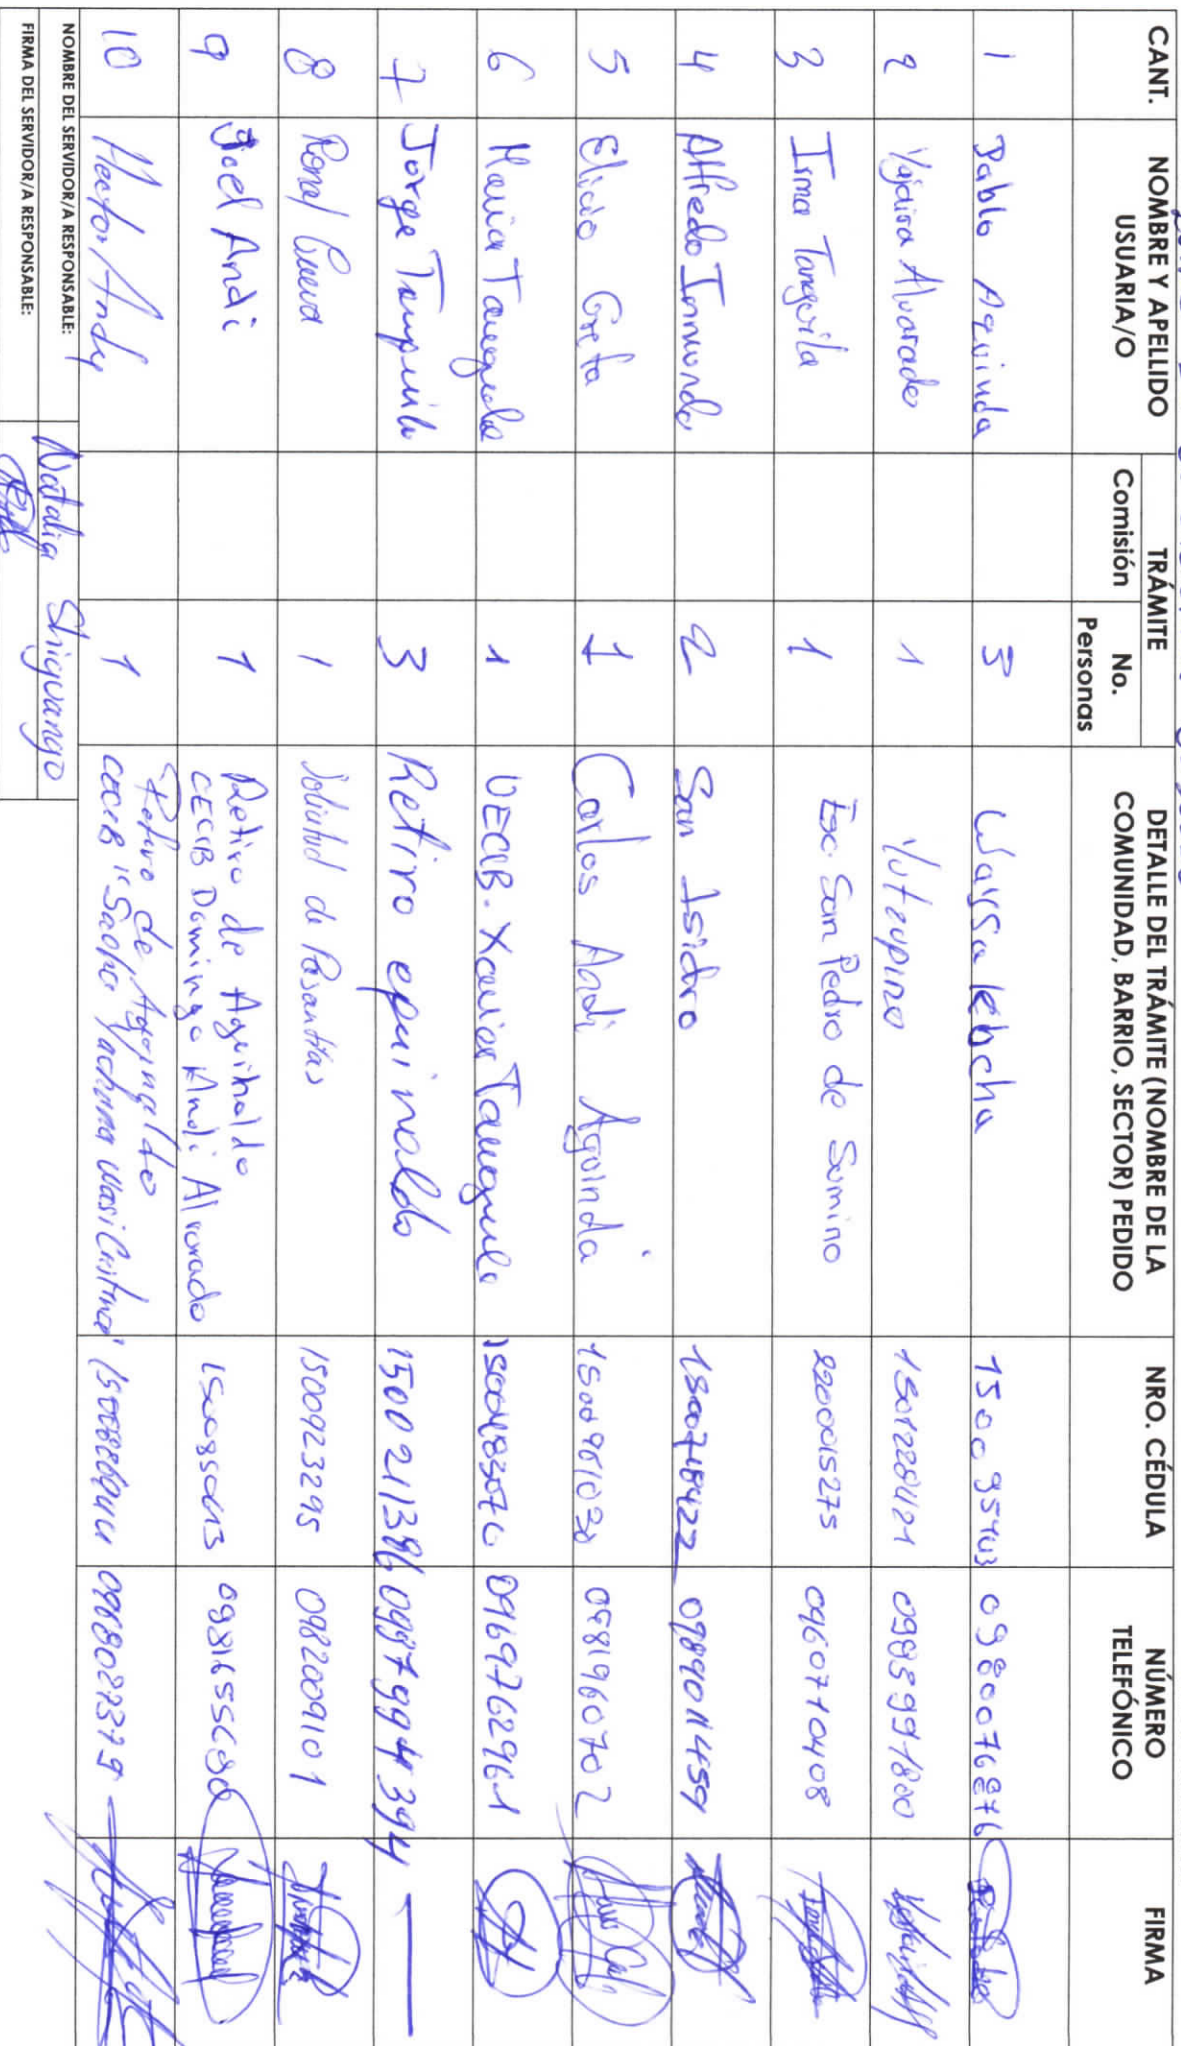 CANT. NOMBRE Y APELLIDO USUARIA/O TRÁMITE DETALLE DEL TRÁMITE (NOMBRE DE LA COMUNIDAD, BARRIO, SECTOR) PEDIDO NRO. CÉDULA NÚMERO TELEFÓNICO FIRMA
Comisión No. Personas
1 Pablo Aguinda 5 Waysa kocha 150095403 0980076876
2 Yajaira Alvarado 1 Yutzupino 1501228421 0985997800
3 Irma Tanguila 1 Esc. San Pedro de Sumino 2200015275 0960710408
4 Alfredo Inmunda 2 San Isidro 1500718422 0989011459
5 Elicio Grefa 1 Carlos Andi Aguinda 1500961030 0981960702
6 Maria Tanguila 1 UECIB. Xavier Tanguila 1500483076 0969762961
7 Jorge Tanguila 3 Retiro eguinaldo 1500211386 0987994394
8 Ronal Cueva 1 Solicitud de Pasantías 1500923295 0982009101
9 Joel Andi 1 Retiro de Aguinaldo
CECIB Domingo Andi Alvarado 1500850013 0981655680
10 Hector Andy 1 Retiro de Aguinaldo
CECIB "Sacha Yachana Wasi 0968027379
NOMBRE DEL SERVIDOR/A RESPONSABLE: Natalia Shiguango
FIRMA DEL SERVIDOR/A RESPONSABLE: